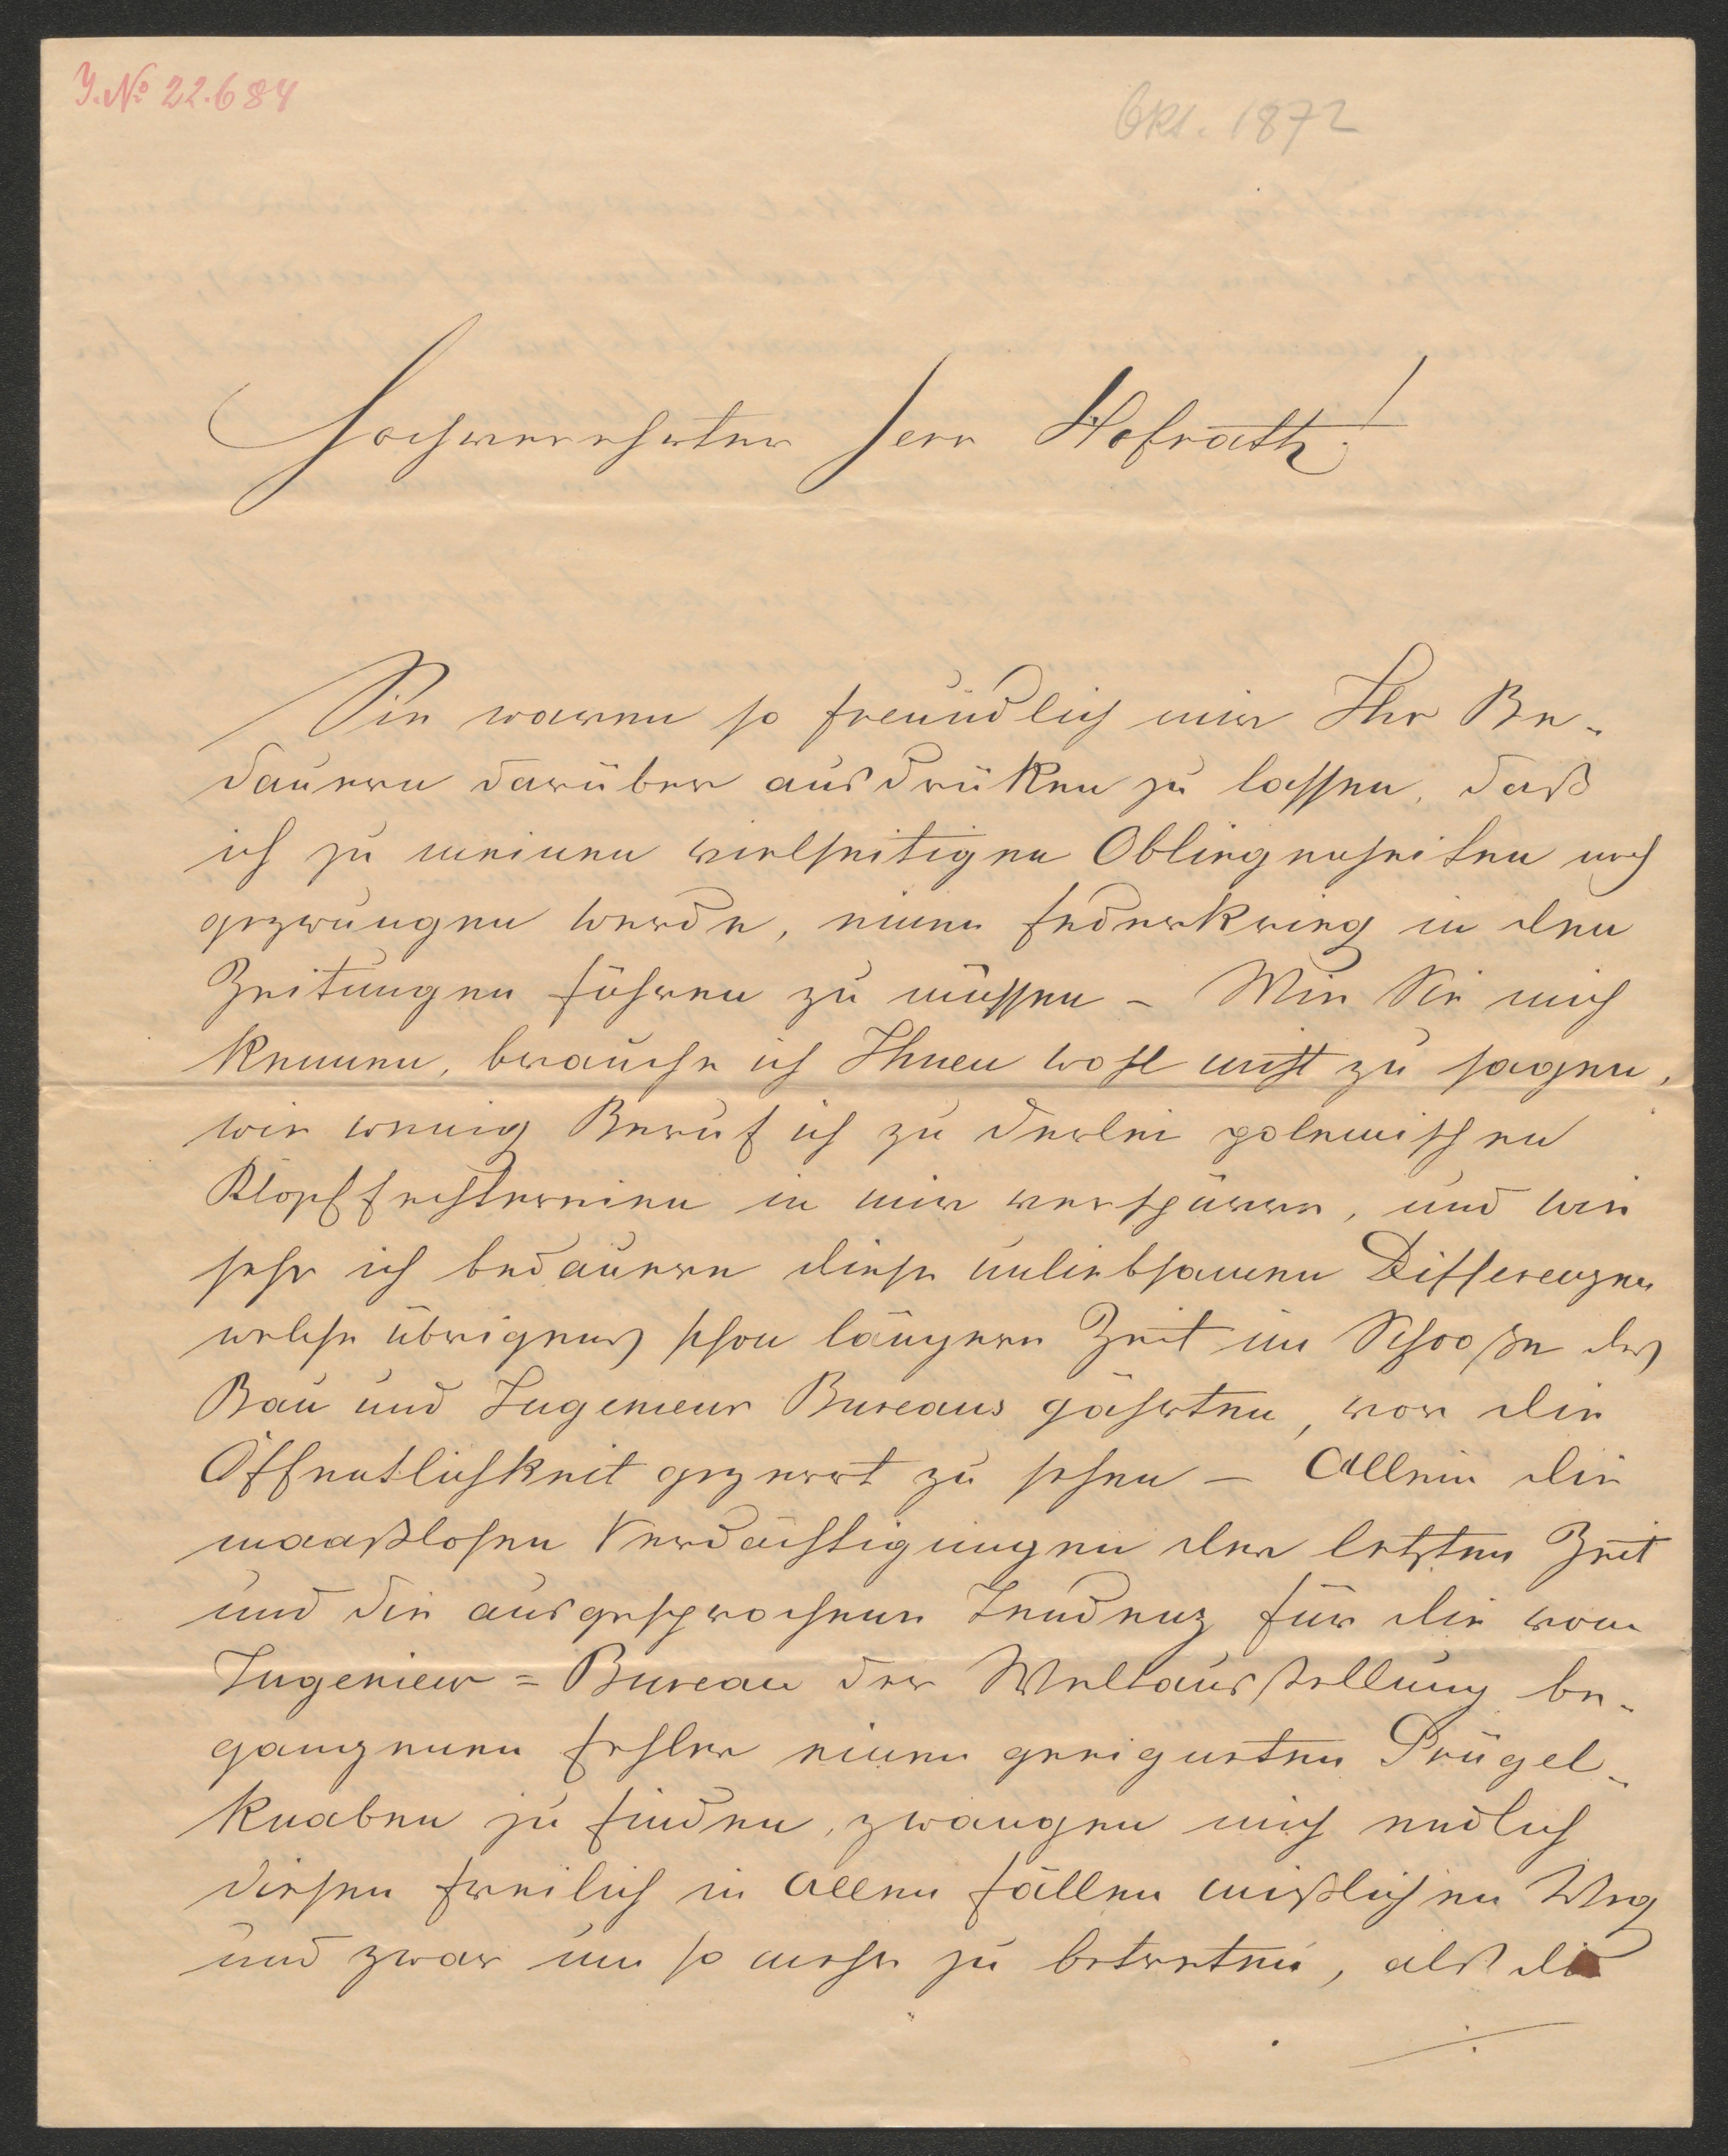 J. No 22.684
Okt. 1872
Hochverehrter Herr Hofrath!
Sie waren so freundlich mir Ihr Be-
dauern darüber ausdrüken zu lassen, daß
ich zu meinen vielseitigen Obliegenheiten noch
gezwungen werde, einen Federkrieg in den
Zeitungen führen zu müssen – Wie Sie mich
kennen, brauche ich Ihnen wohl nicht zu sagen,
wie wenig Beruf ich zu derlei polemischen
Klopffechtereien in mir verspüre, und wie
sehr ich bedauere diese unliebsamen Differenzen
welche übrigens schon längere Zeit im Schooße des
Bau und Ingenieur Bureaus gährten, vor die
Öffentlichkeit gezerrt zu sehen – Allein die
maaßlosen Verdächtigungen der letzten Zeit
und die ausgesprochene Tendenz für die vom
Ingenieur = Bureau der Weltausstellung be-
gangenen Fehler einen geeigneten Prügel-
knaben zu finden, zwangen mich endlich
diesen freilich in allen Fällen mißlichen Weg
und zwar um so mehr zu betreten, als die
./.